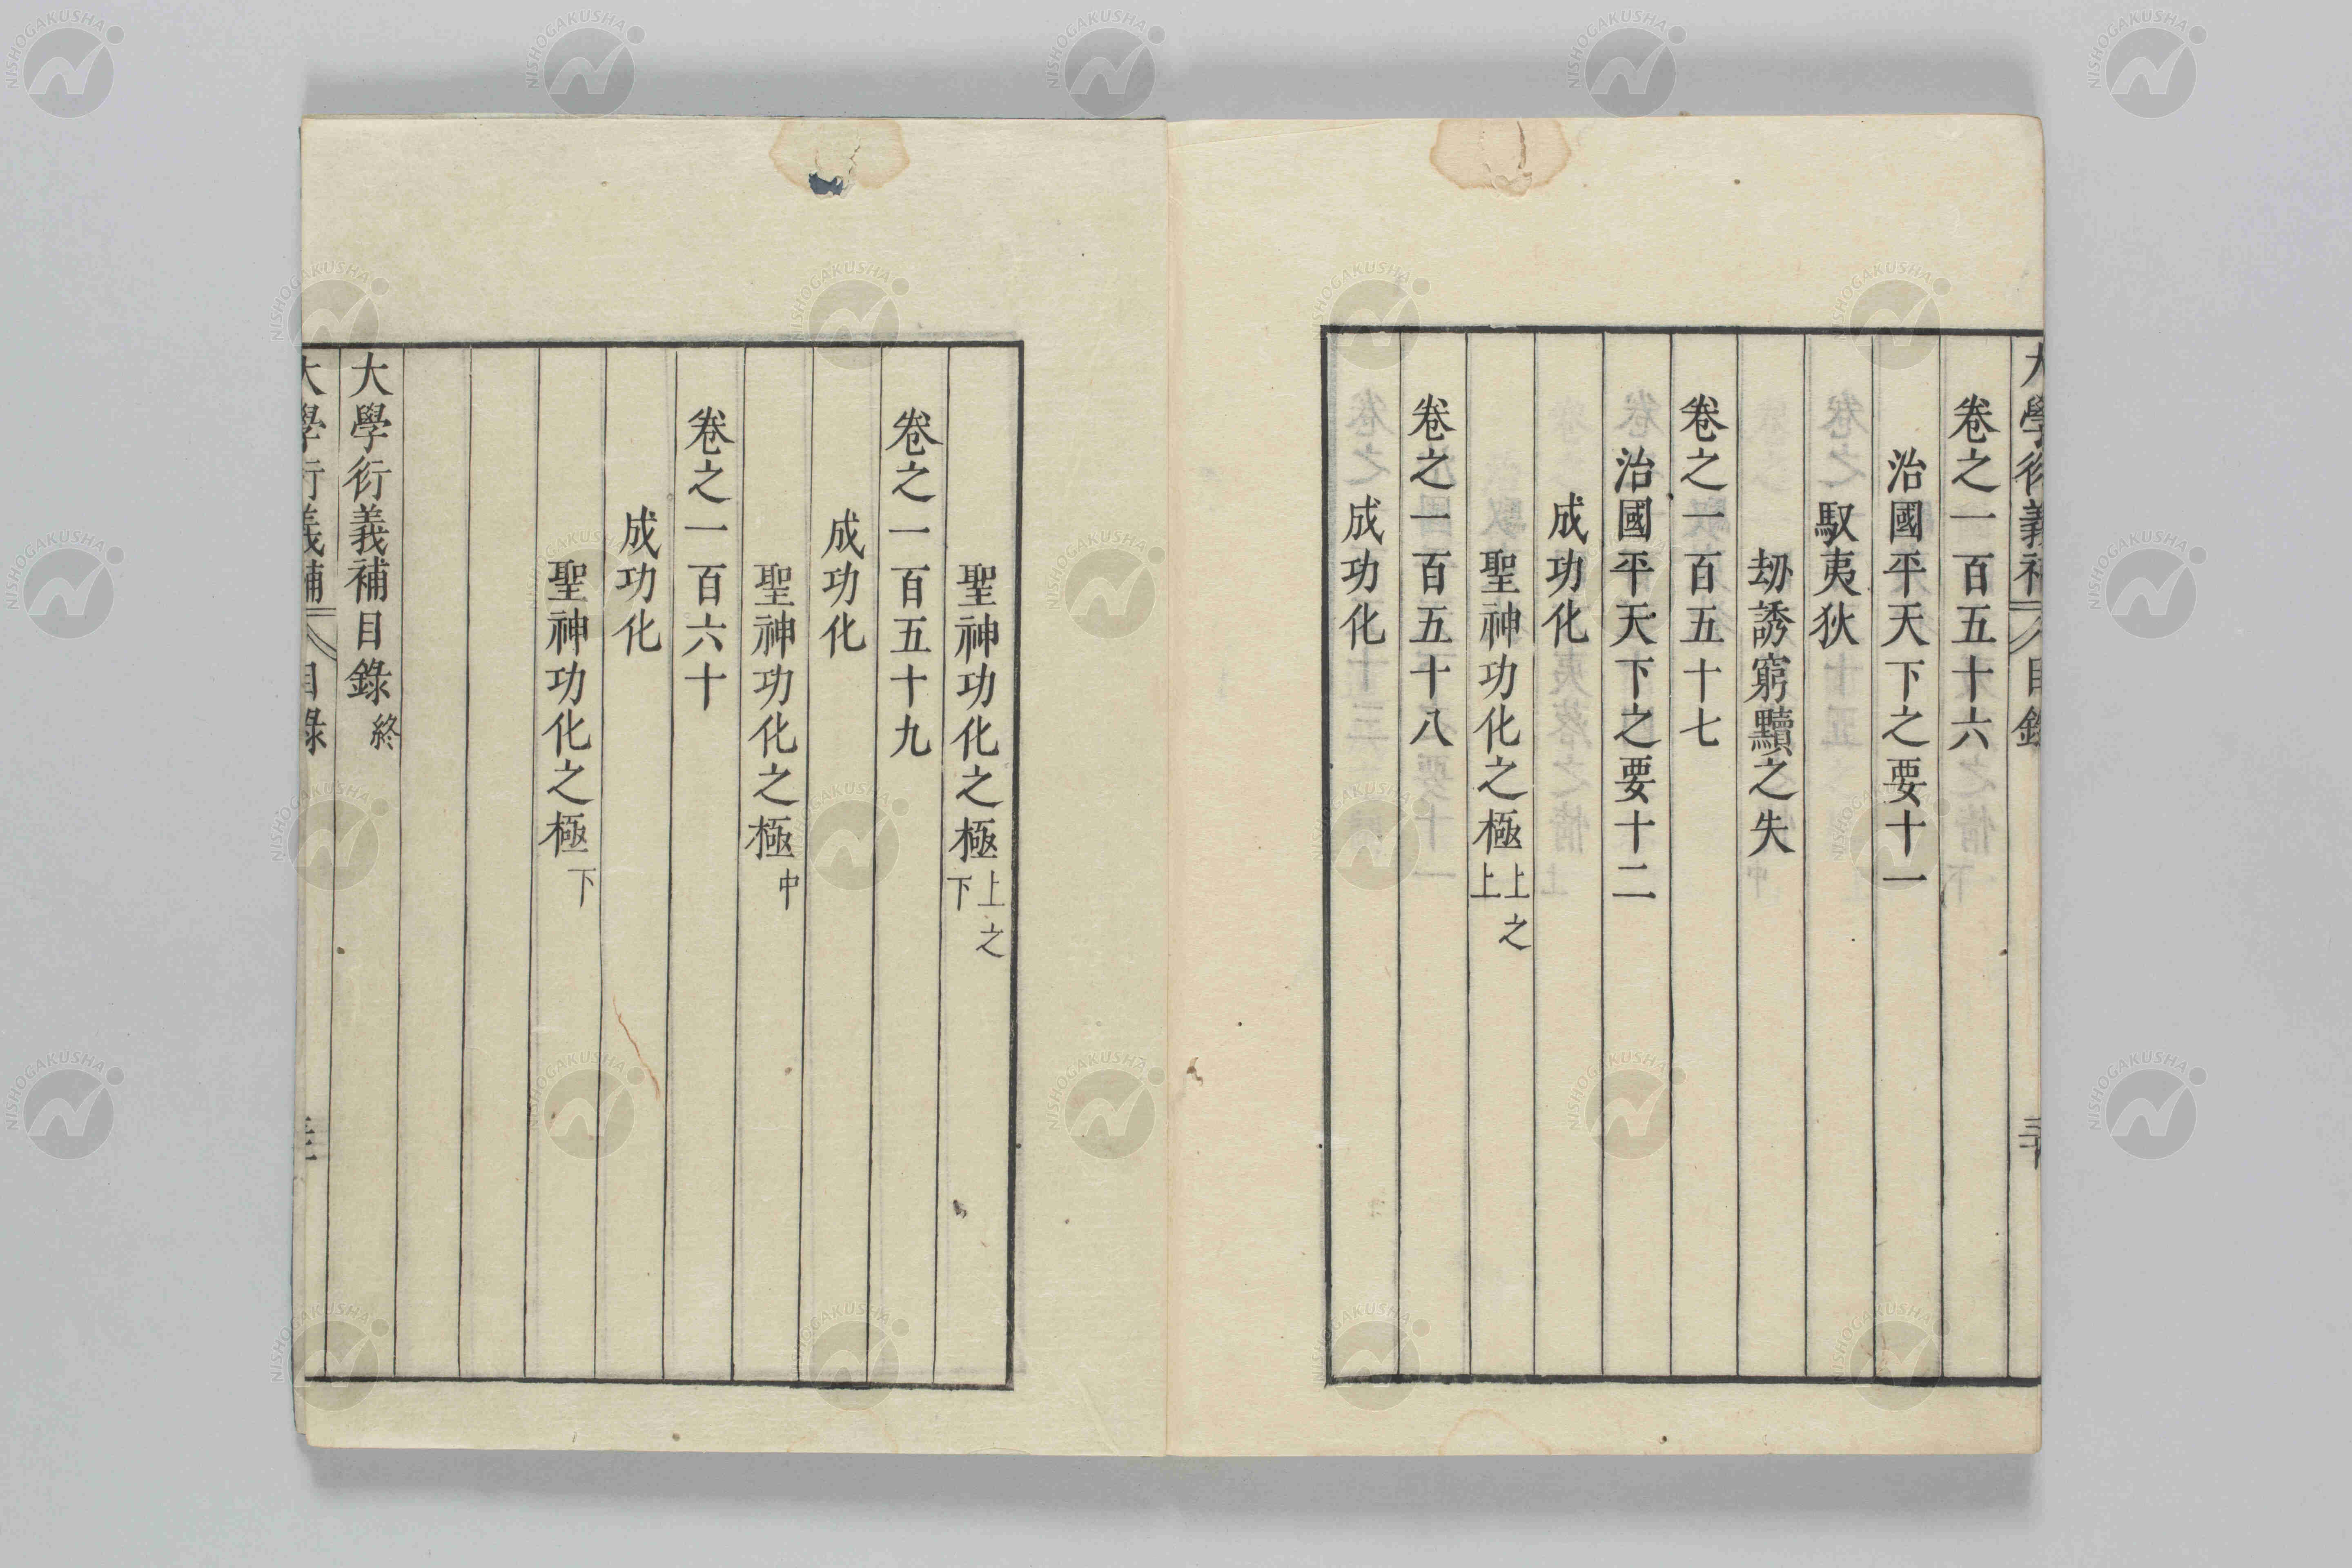 大學衍義補 目錄
卷之一百五十六
治國平天下之要十一
馭夷狄
劫誘窮黷之失
卷之一百五十七
治國平天下之要十二
成功化
聖神功化之極上之上
卷之一百五十八
成功化
聖神功化之極上之下
卷之一百五十九
成功化
聖神功化之極中
卷之一百六十
成功化
聖神功化之極下
大學衍義補目錄終
大學衍義補 目錄
NISHOGAKUSHA